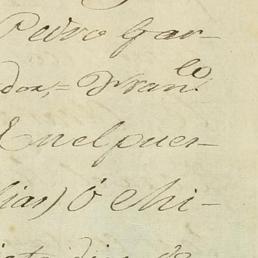 Pedro Gar-
dor,= Fran.co
En el puer-
lias) ó Chi-